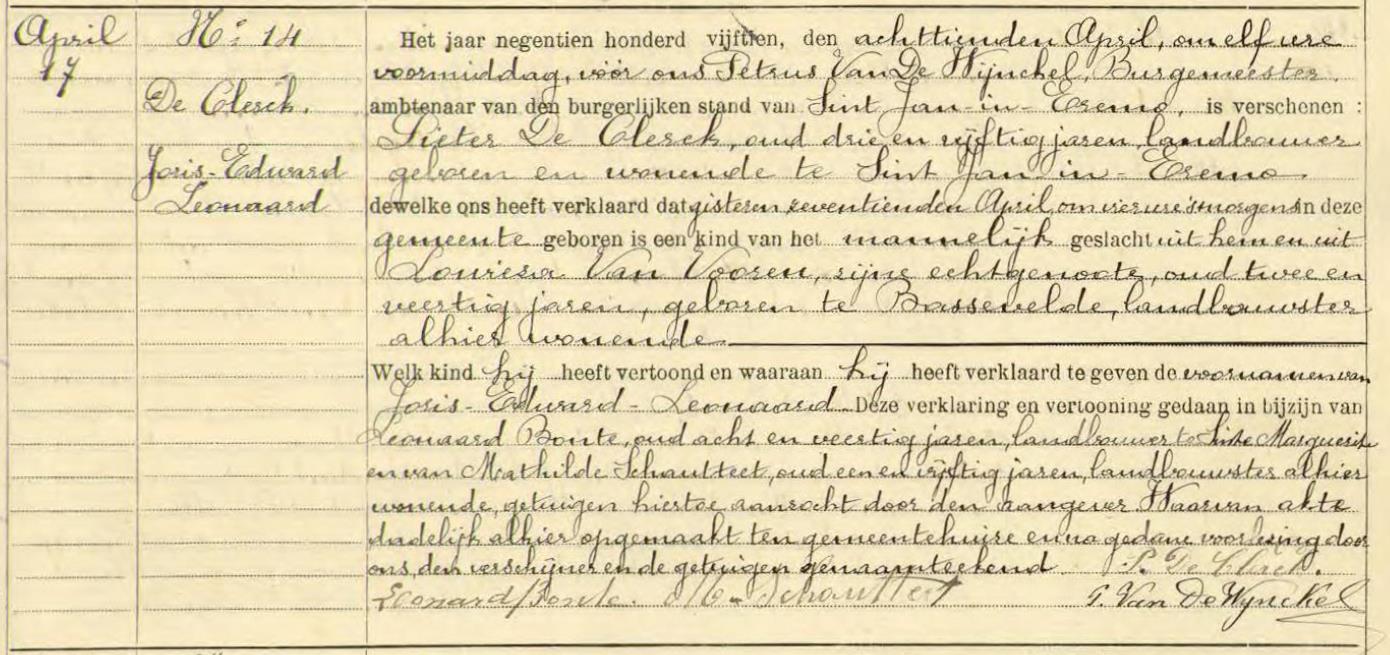 April
17
No: 14
De Clerck.
Joris-Edward
Leonaard
Het jaar negentien honderd vijftien, den achttienden April, om elf ure
voormiddag, vóór ons Petrus Van De Wijnckel, Burgemeester,
ambtenaar van den burgerlijken stand van Sint Jan-in-Eremo, is verschenen :
Pieter De Clerck, oud drie en vijftig jaren, landbouwer
geboren en wonende te Sint Jan-in-Eremo
dewelke ons heeft verklaard dat gisteren zeventienden April, om vier ure 's morgens in deze
gemeente geboren is een kind van het mannelijk geslacht uit hem en uit
Louiesa Van Vooren, zijne echtgenoote, oud twee en
veertig jaren, geboren te Bassevelde, landbouwster
alhier wonende.
Welk kind hij heeft vertoond en waaraan hij heeft verklaard te geven de voornamen van
Joris-Edward-Leonaard Deze verklaring en vertooning gedaan in bijzijn van
Leonaard Bonte, oud acht en veertig jaren, landbouwer te Sinte Marguerite
en van Mathilde Schautteet, oud een en vijftig jaren, landbouwster alhier
wonende, getuigen hiertoe aanzocht door den aangever Waarvan akte
dadelijk alhier opgemaakt ten gemeentehuize en na gedane voorlezing door
ons, den verschijner en de getuigen genaamteekend P. De Clerck.
Leonard Bonte. M- Schautteet P. Van De Wynckel